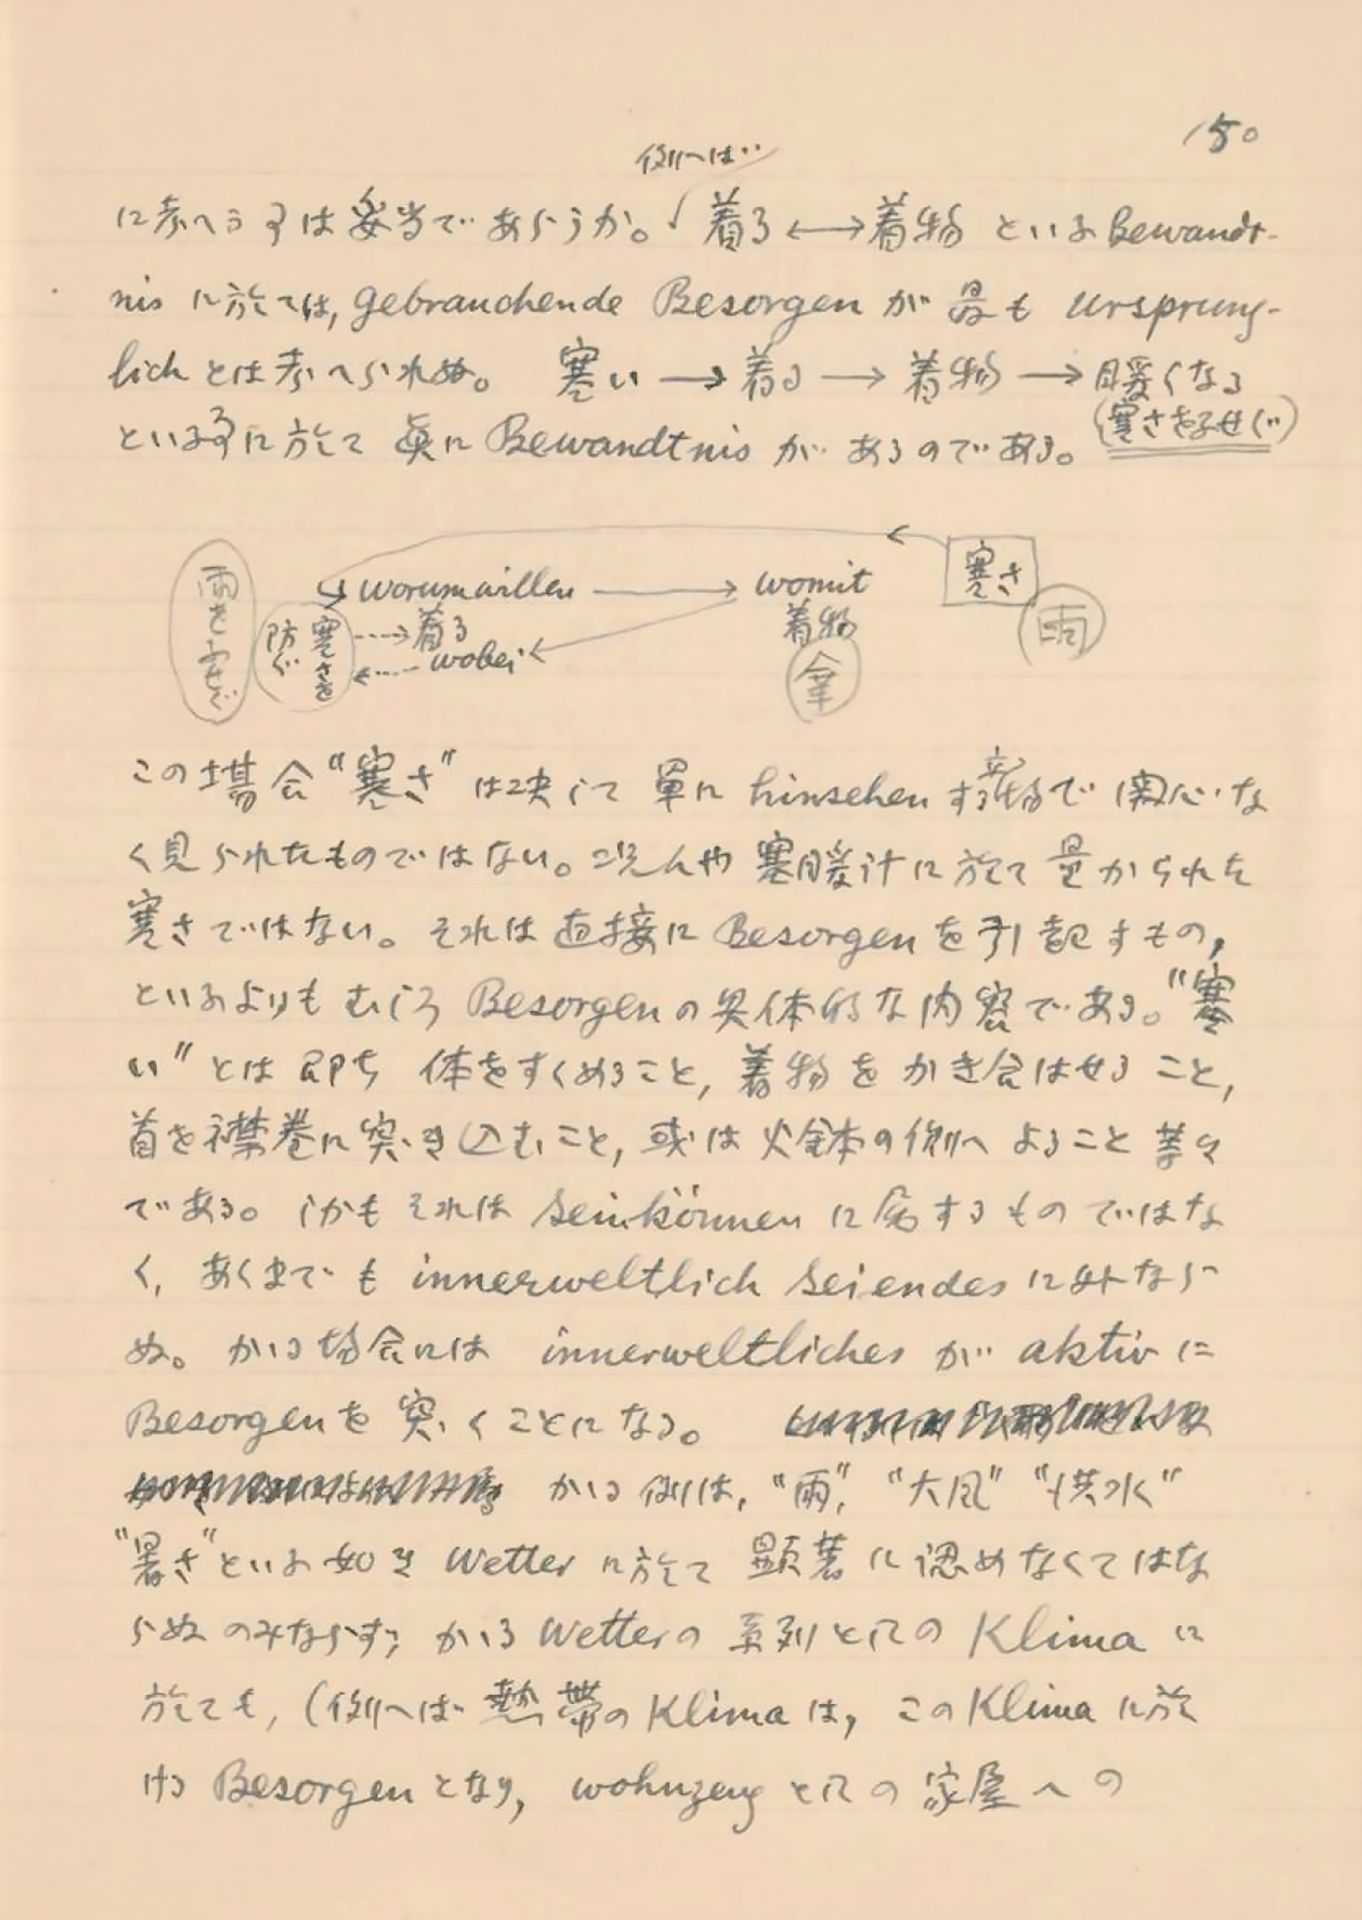 150
例へば
に考へうるは妥当であらうか。√着る ⟷ 着物 といふ Bewandt-
nis に於ては, gebrauchende Besorgen が 最も ursprüng-
lich とは考へられぬ。 寒い → 着る → 着物 → 暖くなる
(寒さをふせぐ)
といふ に於て 真に Bewandtnis が あるのである。
雨をふせぐ
寒さを防ぐ
worumwillen → womit
着る
着物
wobei
傘
寒さ
雨
この場合“寒さ”は決して 単に hinsehen する で 関心な
く見られたものではない。況んや 寒暖計に於て 量かられた
寒さではない。それは 直接に Besorgen を引起すもの,
といふよりも むしろ Besorgen の具体的な内容である。“寒
い”とは 即ち 体をすくめること, 着物をかき合はせること,
首を襟巻に突き込むこと, 或は火鉢の側へよること等々
である。しかもそれは Seinkönnen に属するものではな
く, あくまでも innerweltlich Seiendes に外なら
ぬ。かゝる場合には innerweltliches が aktiv に
Besorgen を突くことになる。
かゝる例は, “雨”, “大風” “洪水”
“暑さ”といふ如き Wetter に於て 顕著に認めなくてはな
らぬのみならず, かゝる Wetter の系列としての Klima に
於ても, (例へば 熱帯の Klima は, この Klima に於
ける Besorgen となり, Wohnzeug としての 家屋への